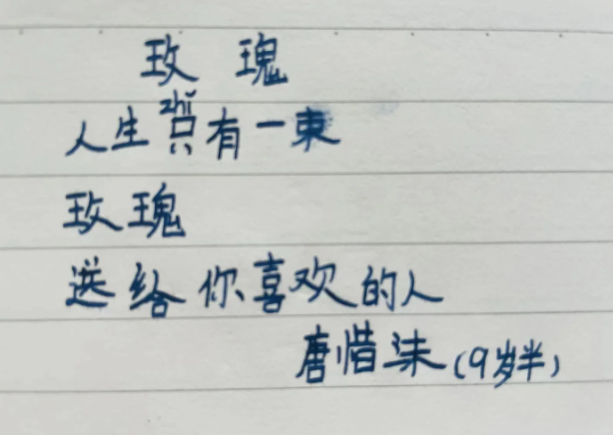 玫瑰
人生只有一束
玫瑰
送给你喜欢的人
唐惜沫(9岁半)